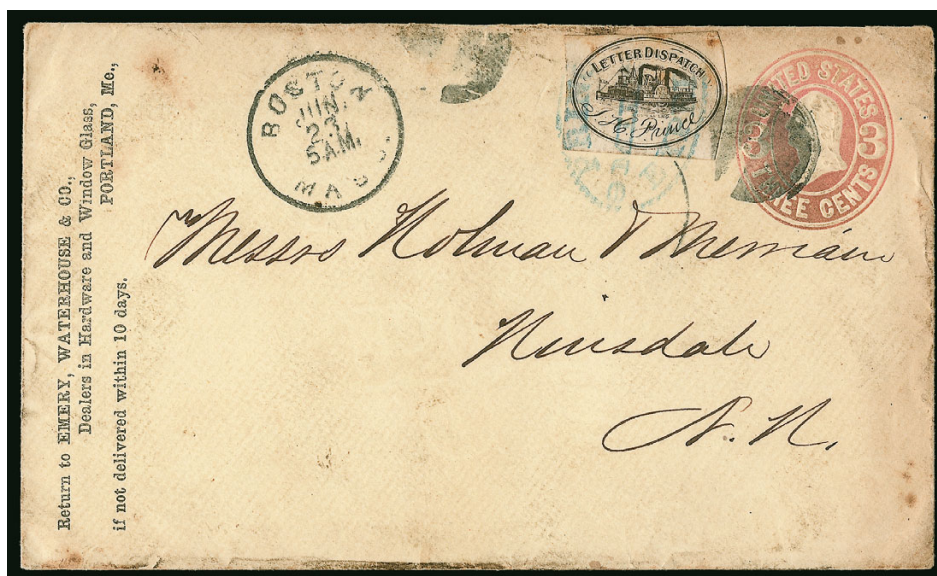 Return to EMERY, WATERHOUSE & CO.,
Dealers in Hardware and Window Glass,
PORTLAND, Me.,
if not delivered within 10 days.
BOSTON
JUN.
23
5 A.M.
MASS.
LETTER DISPATCH
J. H. Prince
UNITED STATES
3
THREE CENTS
Messrs Holman & Merriam
Hinsdale
N. H.